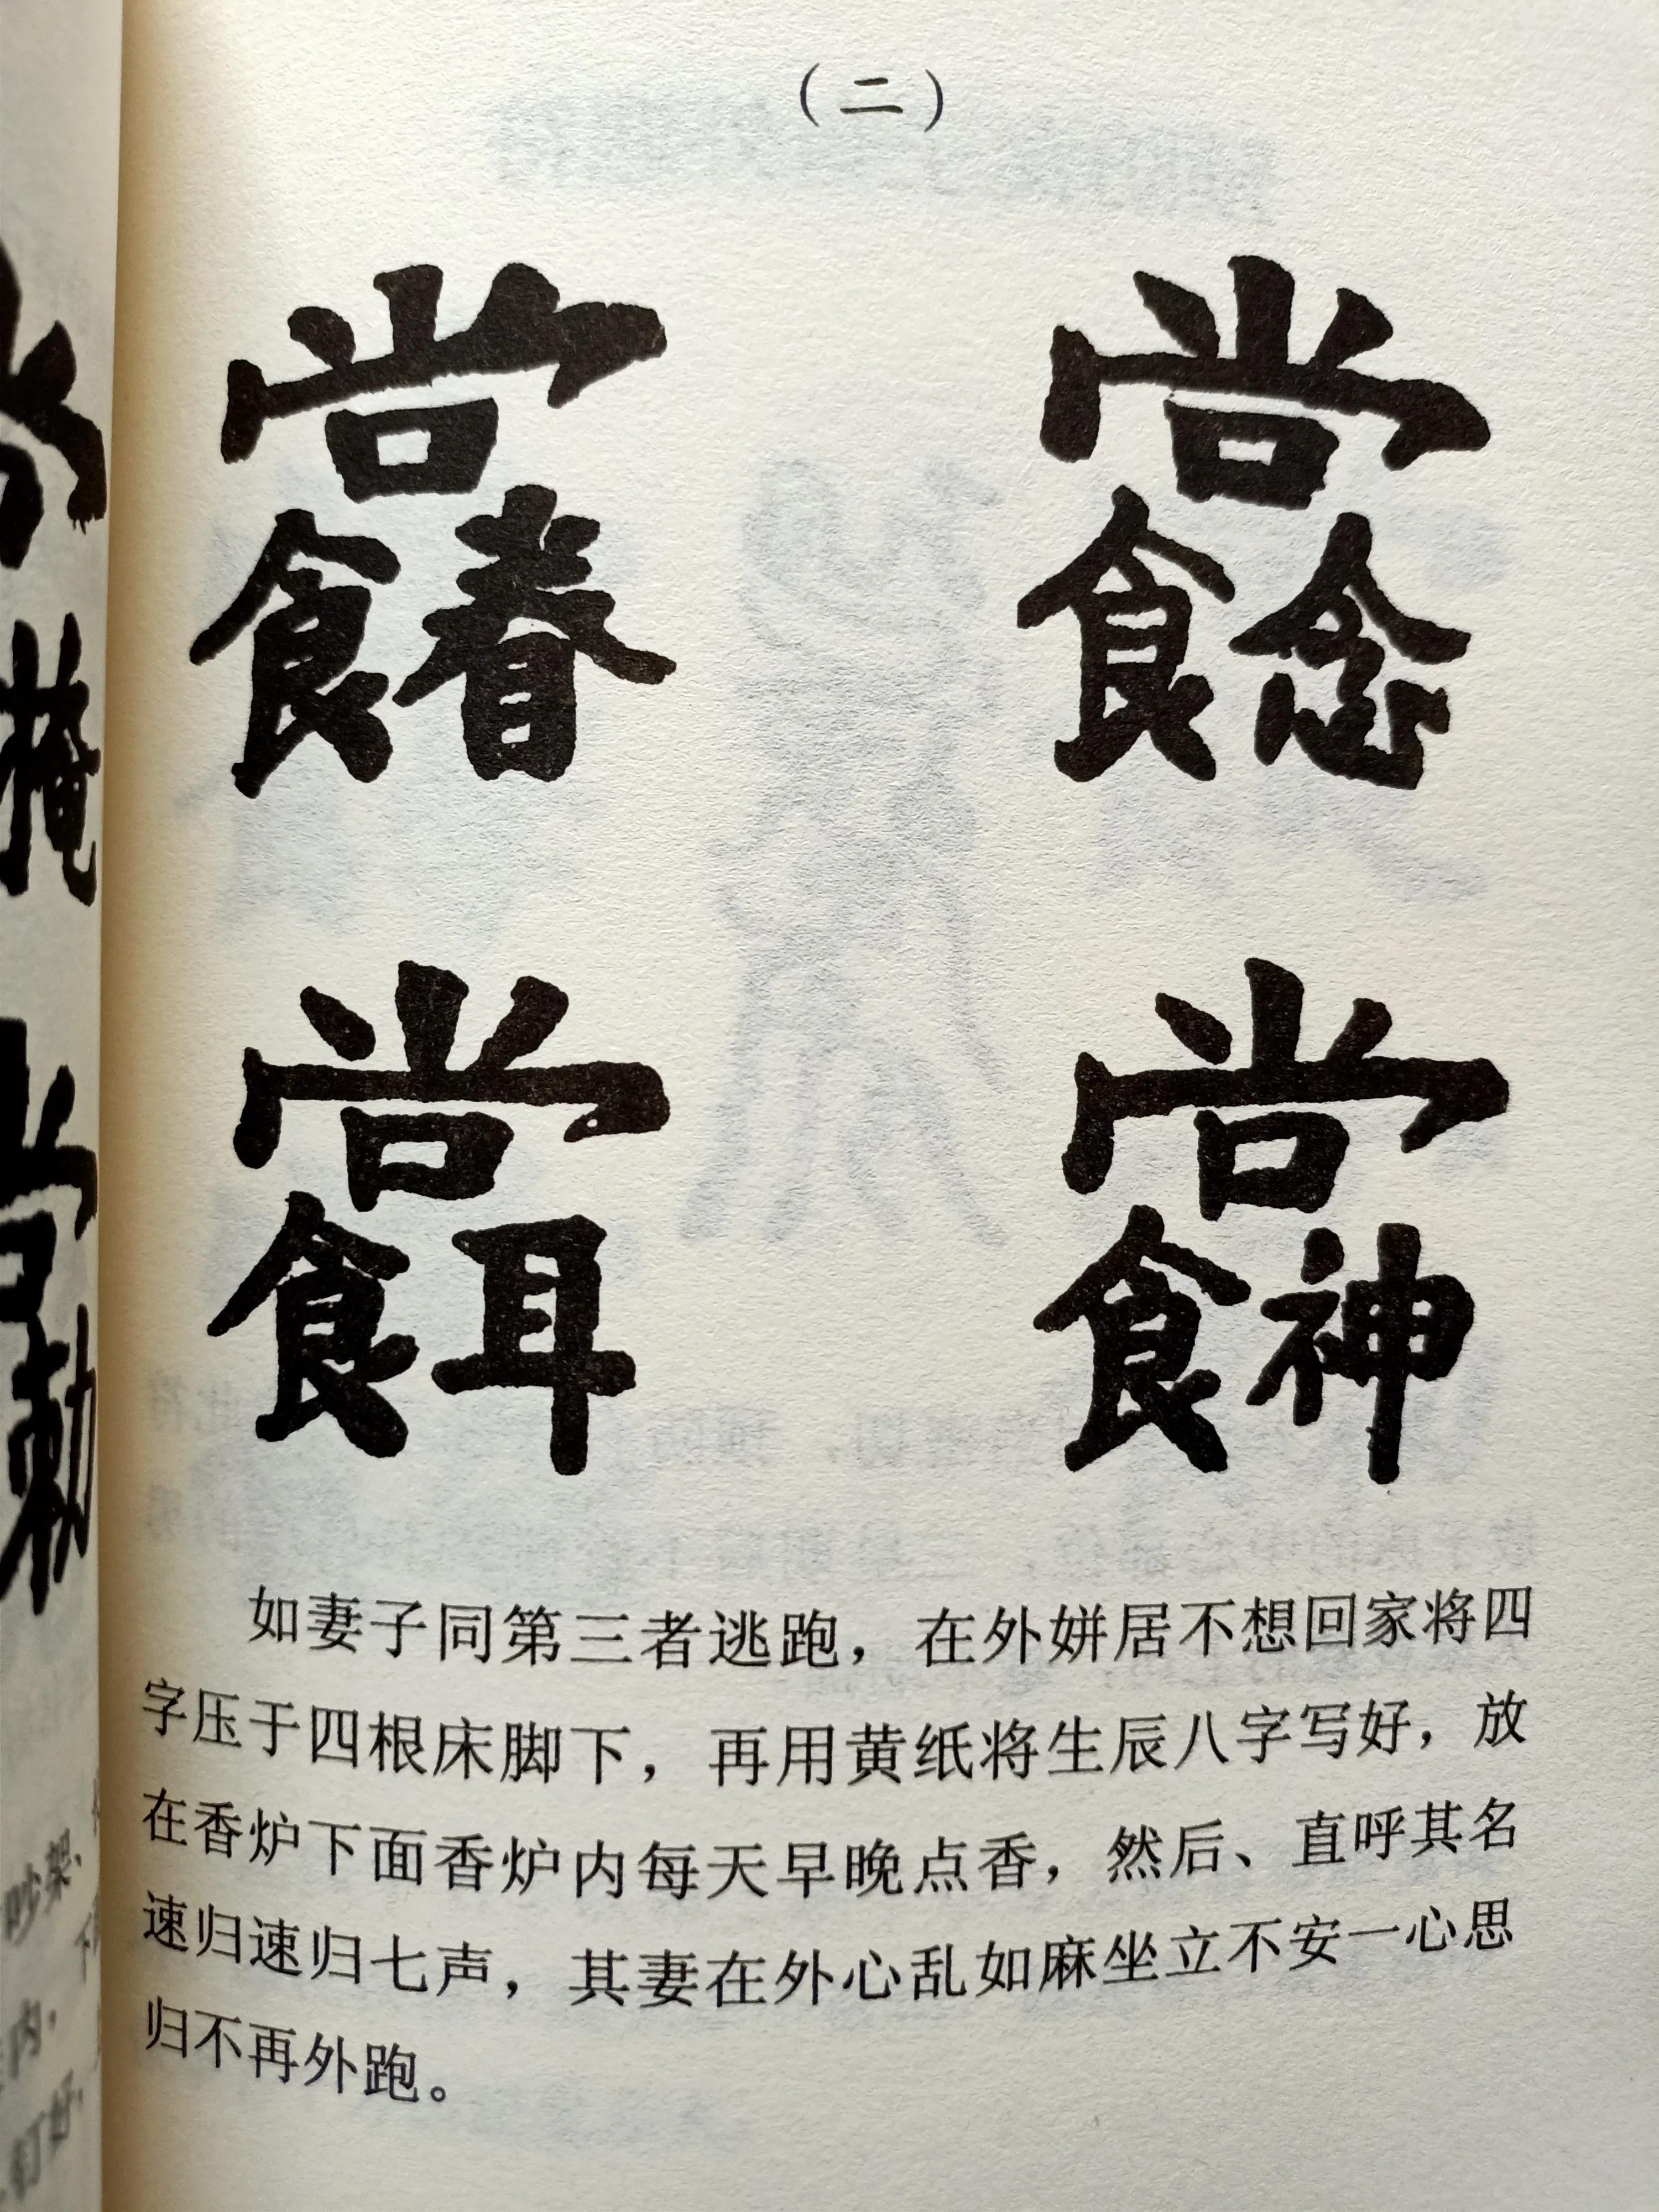 掩
吵架、
内，
钉好，
（二）
尚食春 尚食念
尚食耳 尚食神
如妻子同第三者逃跑，在外姘居不想回家将四
字压于四根床脚下，再用黄纸将生辰八字写好，放
在香炉下面香炉内每天早晚点香，然后、直呼其名
速归速归七声，其妻在外心乱如麻坐立不安一心思
归不再外跑。